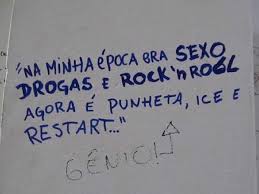 "NA MINHA ÉPOCA ERA SEXO
DROGAS E ROCK'nROLL
AGORA É PUNHETA, ICE E
RESTART..."
GÊNIO!